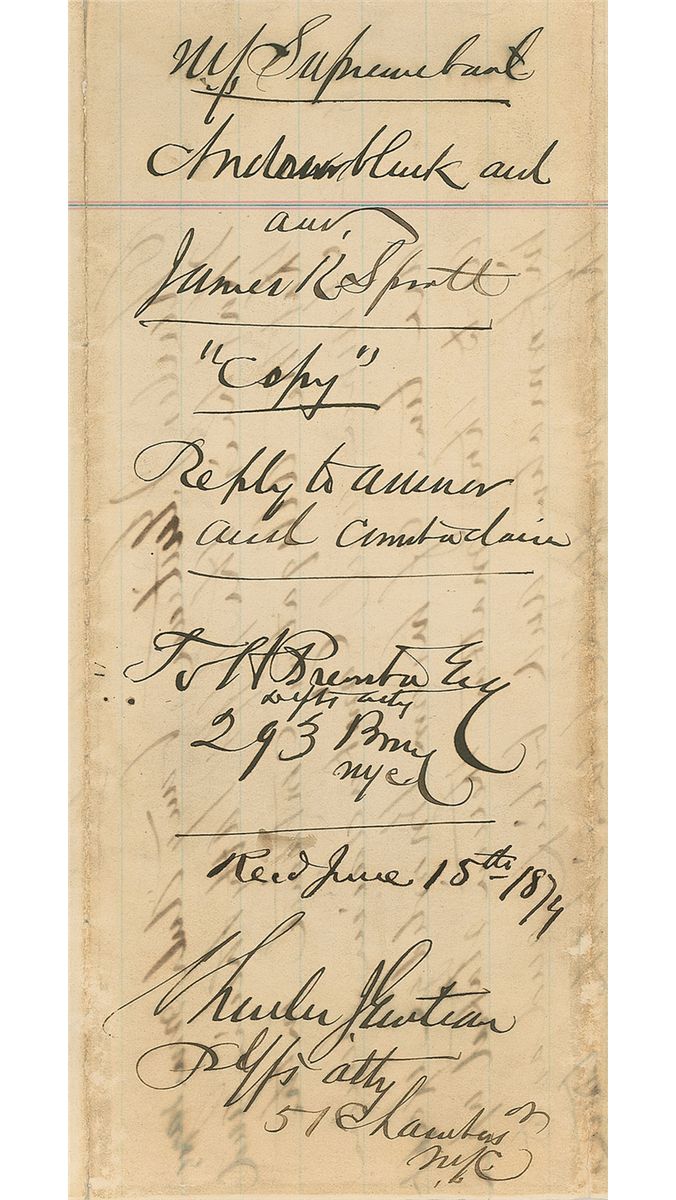 NY Supreme Court
Andrew Bluck and
anr.
James K Spratt
"Copy"
Reply to answer
and counterclaim
To H Esq
defts atty
293 Bway
NYC
Recd June 15th 1874
Charles J Guiteau
Plffs atty
51 Chambers St
NYC